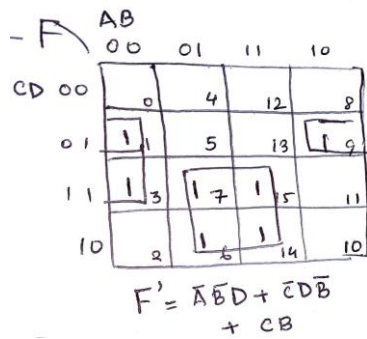 AB
- F 00 01 11 10
CD 00 0 4 12 8
01 1 1 5 13 1 9
11 1 3 1 7 1 15 11
10 2 1 6 1 14 10
F' = A̅B̅D + C̅DB̅
+ CB